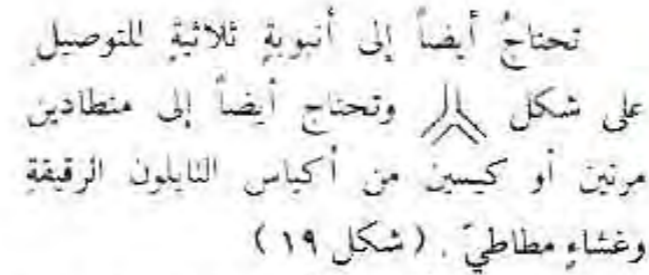 تحتاجُ أيضاً إلى أنبوبةٍ ثلاثيةٍ للتوصيلِ
على شكل وتحتاج أيضاً إلى منطادين
مرنين أو كيسين من أكياس النايلون الرقيقةِ
وغشاءٍ مطاطيّ . ( شكل ١٩ )